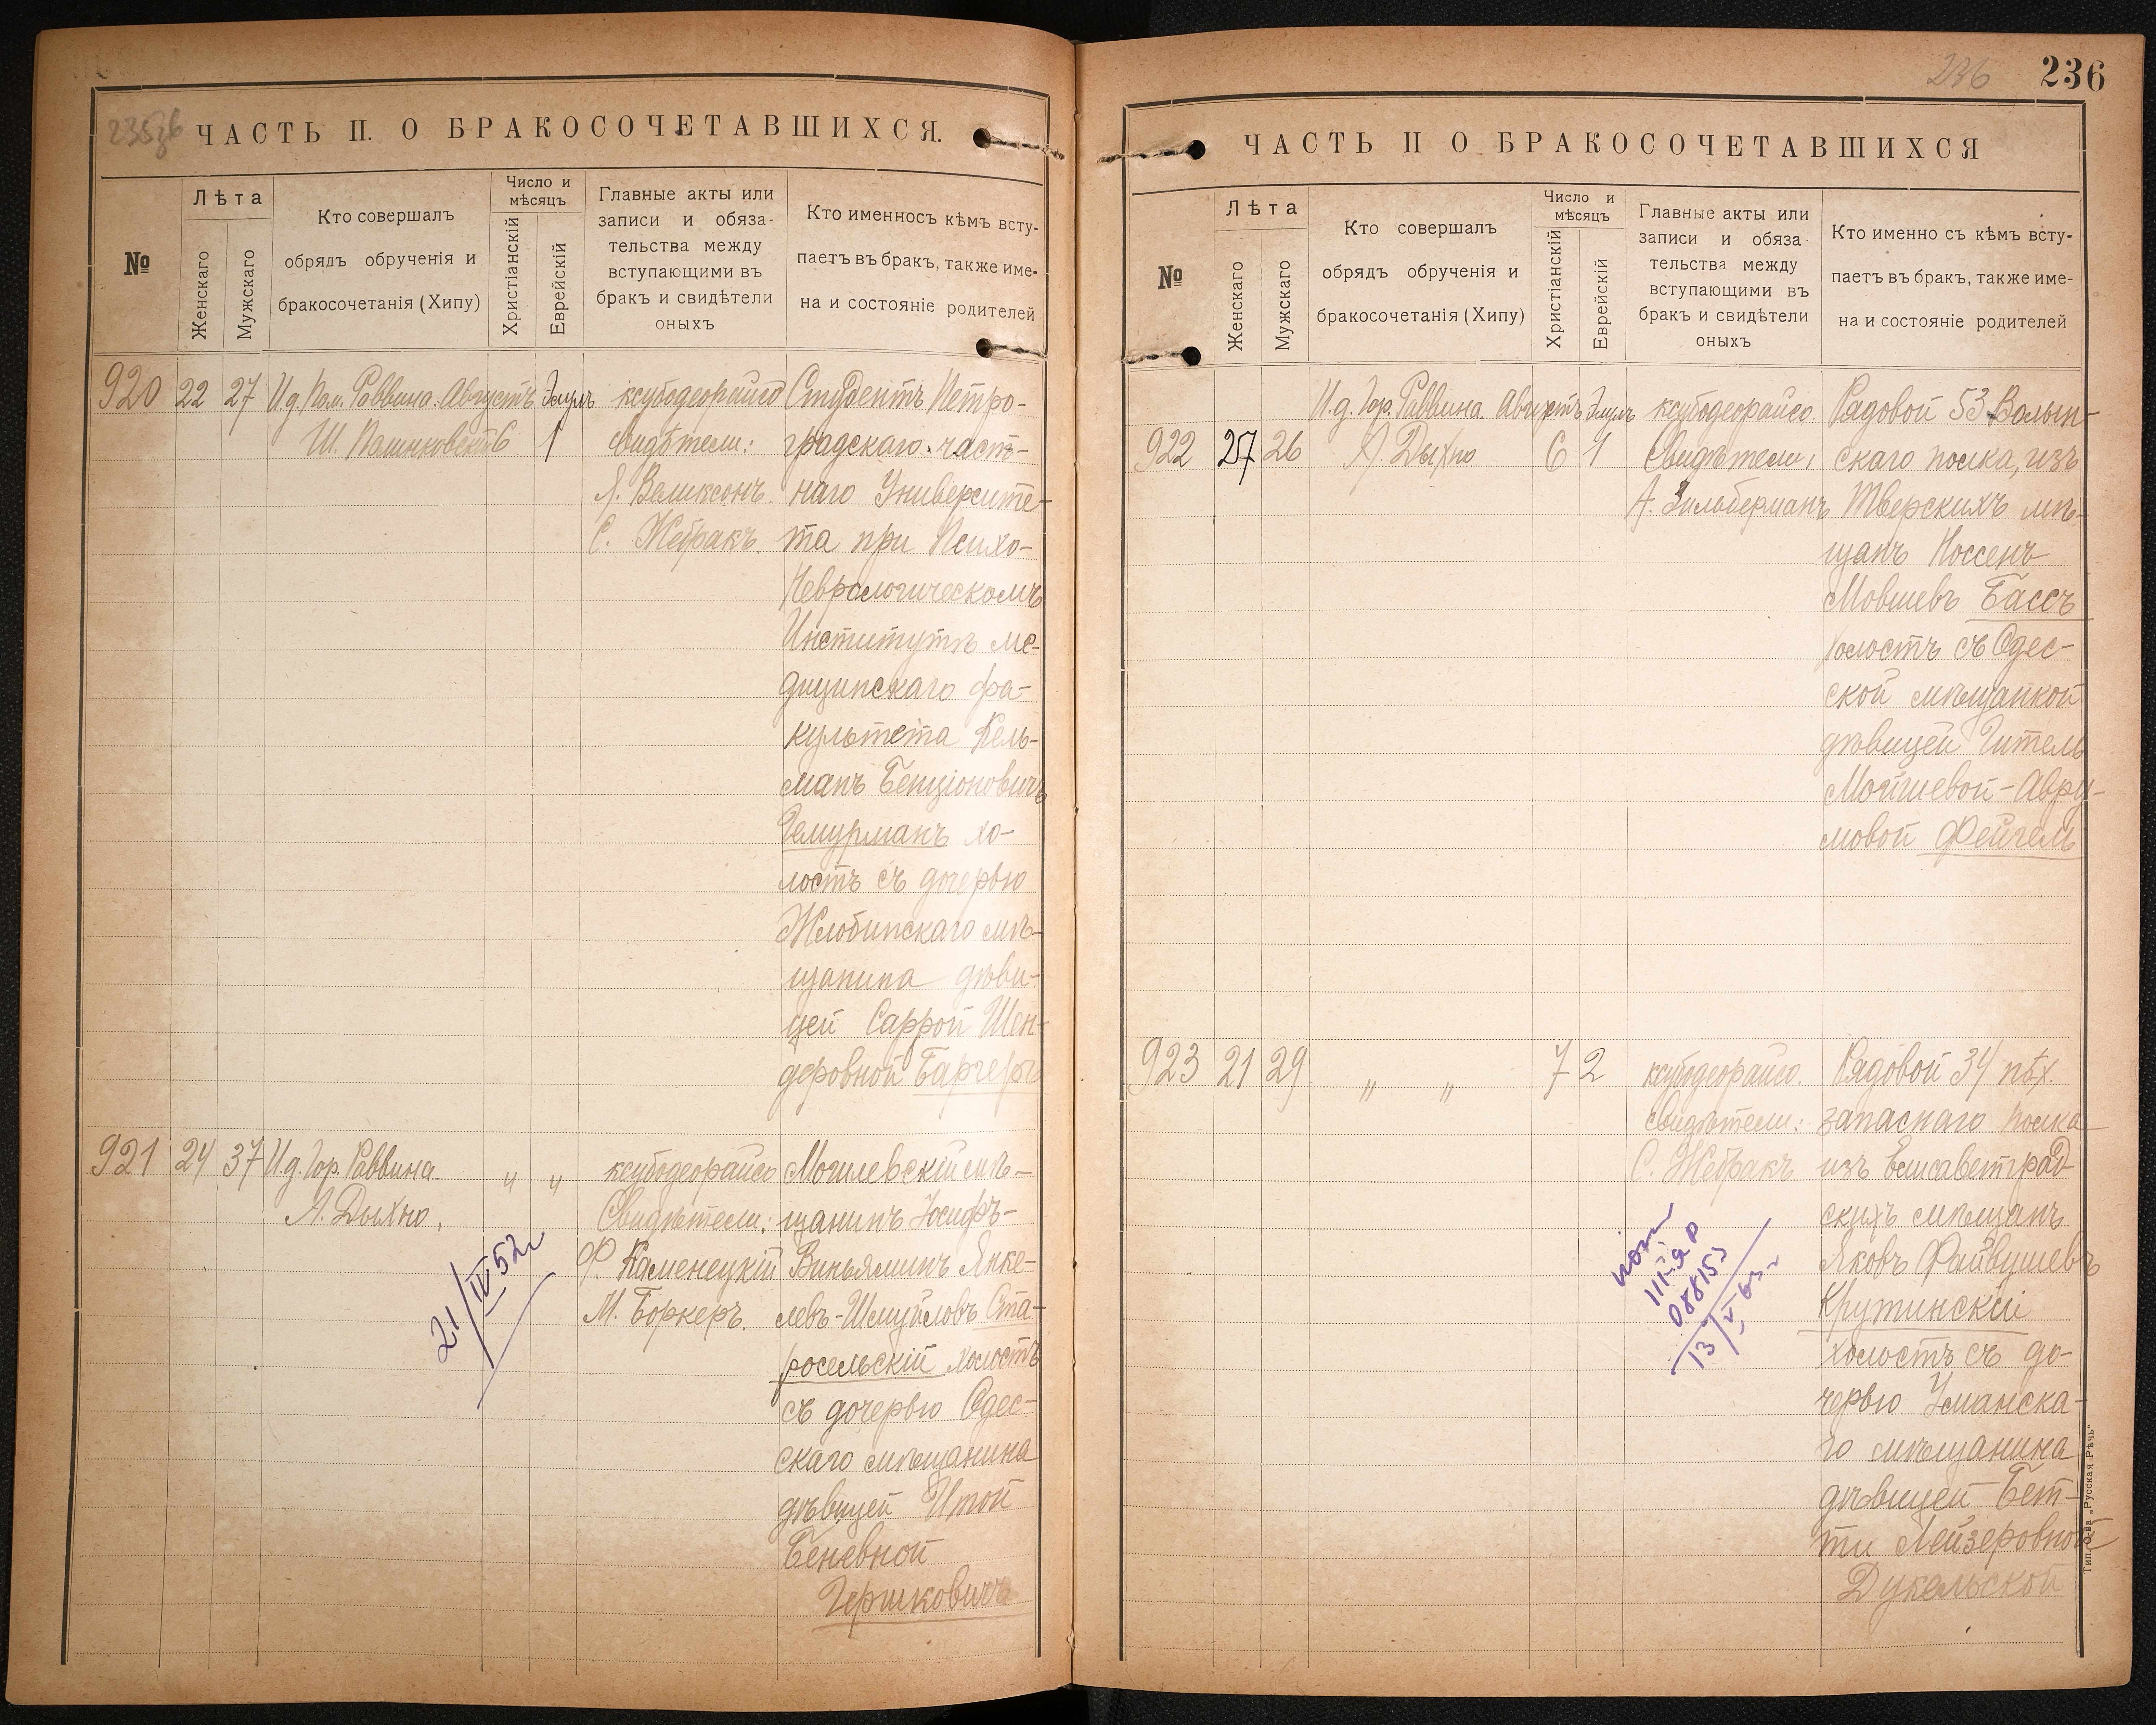 235об
ЧАСТЬ II. О БРАКОСОЧЕТАВШИХСЯ.
№
Лѣта
Женскаго
Мужскаго
Кто совершалъ
обрядъ обрученія и
бракосочетанія (Хипу)
Число и
мѣсяцъ
Христіанскій
Еврейскій
Главные акты или
записи и обяза-
тельства между
вступающими въ
бракъ и свидѣтели
оныхъ
Кто именносъ кѣмъ всту-
паетъ въ бракъ, также име-
на и состояніе родителей
920 22 27 И.д. Пом. Раввина Августъ Элулъ ксубодеорайсо Студентъ Петро-
Ш. 6 1 свидѣтели: градскаго част-
Я. Великсонъ. наго Университе-
С. Жебракъ. та при Психо-
Неврологическомъ
Институтѣ ме-
дицинскаго фа-
культета Кель-
манъ Бенціоновичъ
Гемурманъ хо-
лостъ съ дочерью
Жлобинскаго мѣ-
щанина дѣви-
цей Саррой Шен-
деровной Баргеръ
921 24 37 И.д. Гор. Раввина „ „ ксубодеорайсо Могилевскій мѣ-
А. Дыхно. Свидѣтели: щанинъ Іосифъ-
Ф. Каменецкій Виньяминъ Янке-
М. Боркеръ. левъ-Шмуйловъ Ста-
росельскій холостъ
съ дочерью Одес-
скаго мѣщанина
дѣвицей Итой
Беневной
Гершковичъ
21/IV 52г
236
236
ЧАСТЬ II О БРАКОСОЧЕТАВШИХСЯ
№
Лѣта
Женскаго
Мужскаго
Кто совершалъ
обрядъ обрученія и
бракосочетанія (Хипу)
Число и
мѣсяцъ
Христіанскій
Еврейскій
Главные акты или
записи и обяза
тельства между
вступающими въ
бракъ и свидѣтели
оныхъ
Кто именно съ кѣмъ всту-
паетъ въ бракъ, также име-
на и состояніе родителей
И.д. Гор. Раввина Августъ Элулъ ксубодеорайсо. Рядовой 53 Волын-
922 27 26 А Дыхно 6 1 Свидѣтели, скаго полка, изъ
А. Зильберманъ Тверскихъ мѣ-
щанъ Носсенъ
Мовшевъ Бассъ
холостъ съ Одес-
ской мѣщанкой
дѣвицей Гитель
Мойшевой-Авру-
мовой Фейгель
923 21 29 „ „ 7 2 ксубодеорайсо. Рядовой 34 пѣх.
свидѣтели: запаснаго полка
С. Жебракъ изъ Елисаветград
скихъ мѣщанъ
Яковъ Файвушевъ
Крутинскій
холостъ съ до-
черью Уманска-
го мѣщанина
дѣвицей Бет-
ти Лейзеровной
Дукельской
088153
Тип. О-ва „Русская Рѣчь“